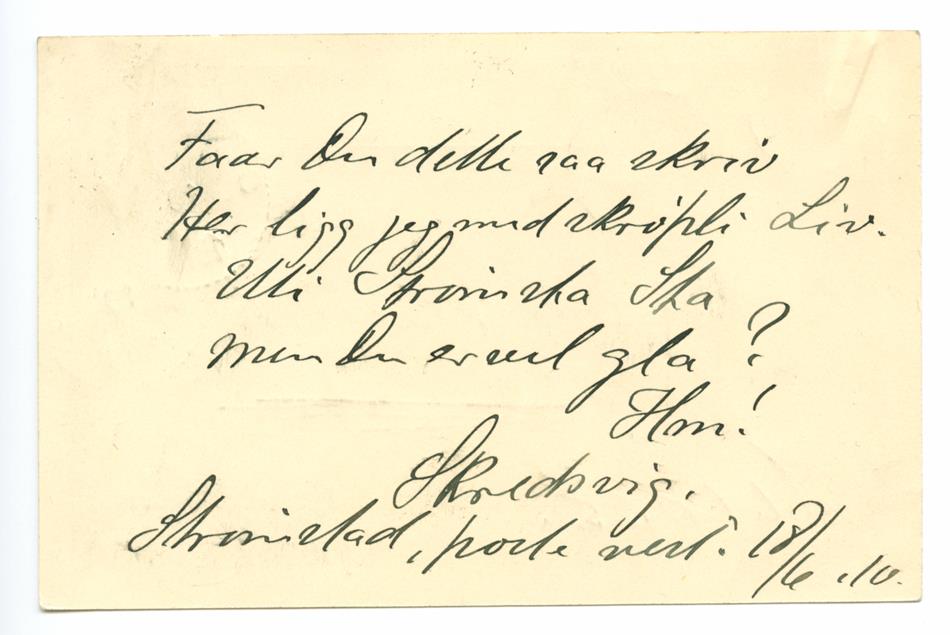 Faar Du dette saa skriv
Her ligg jeg med skrøpli Liv.
Uti Strømsta Sta
men Du er vel gla?
Hm!
Skredsvig.
Strømstad, poste rest. 18/6.10.